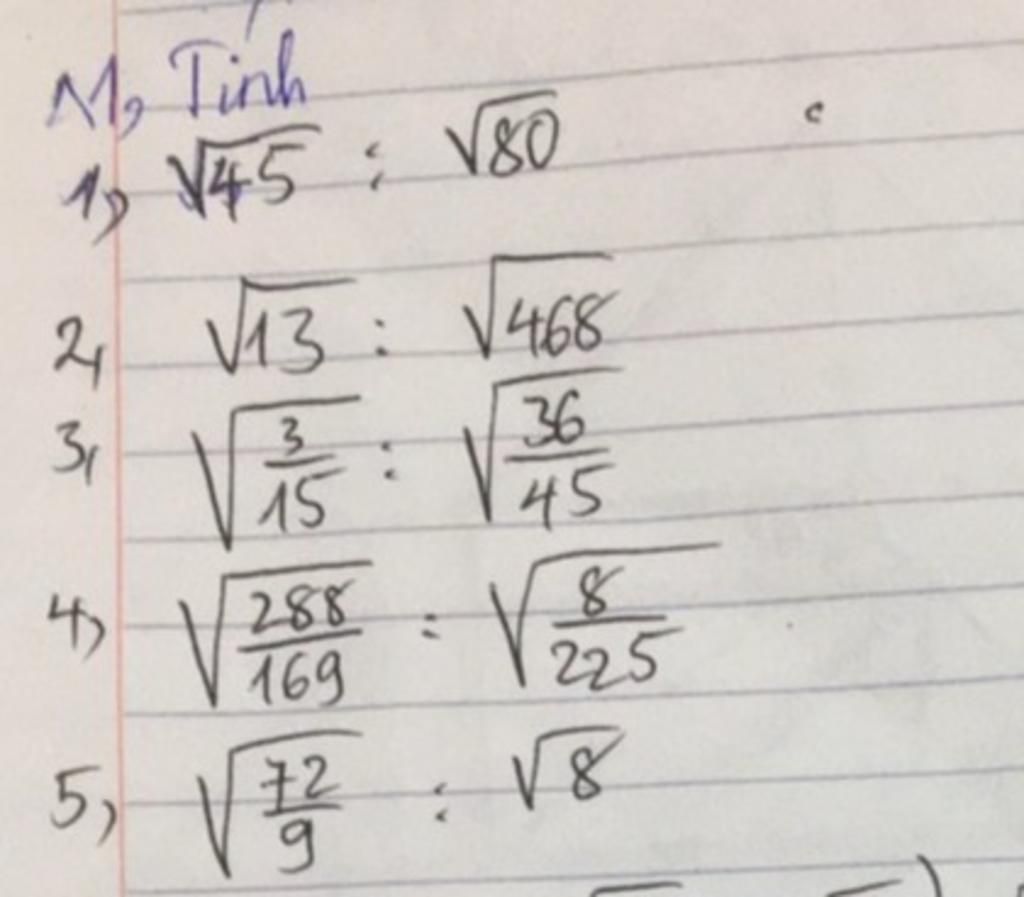 M, Tính
1, √45 : √80
2, √13 : √468
3, √(3/15) : √(36/45)
4, √(288/169) : √(8/225)
5, √(72/9) : √8